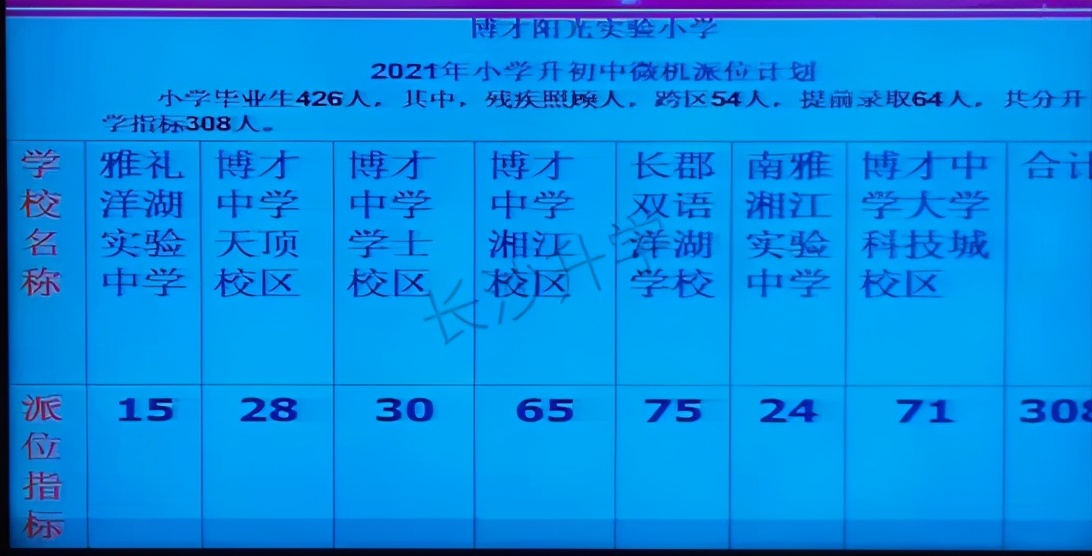 博才阳光实验小学
2021年小学升初中微机派位计划
小学毕业生426人，其中，残疾照顾人，跨区54人，提前录取64人，共分开
学指标308人。
学校名称 雅礼洋湖实验中学 博才中学天顶校区 博才中学学士校区 博才中学湘江校区 长郡双语洋湖学校 南雅湘江实验中学 博才中学大学科技城校区 合计
派位指标 15 28 30 65 75 24 71 308
长沙升学